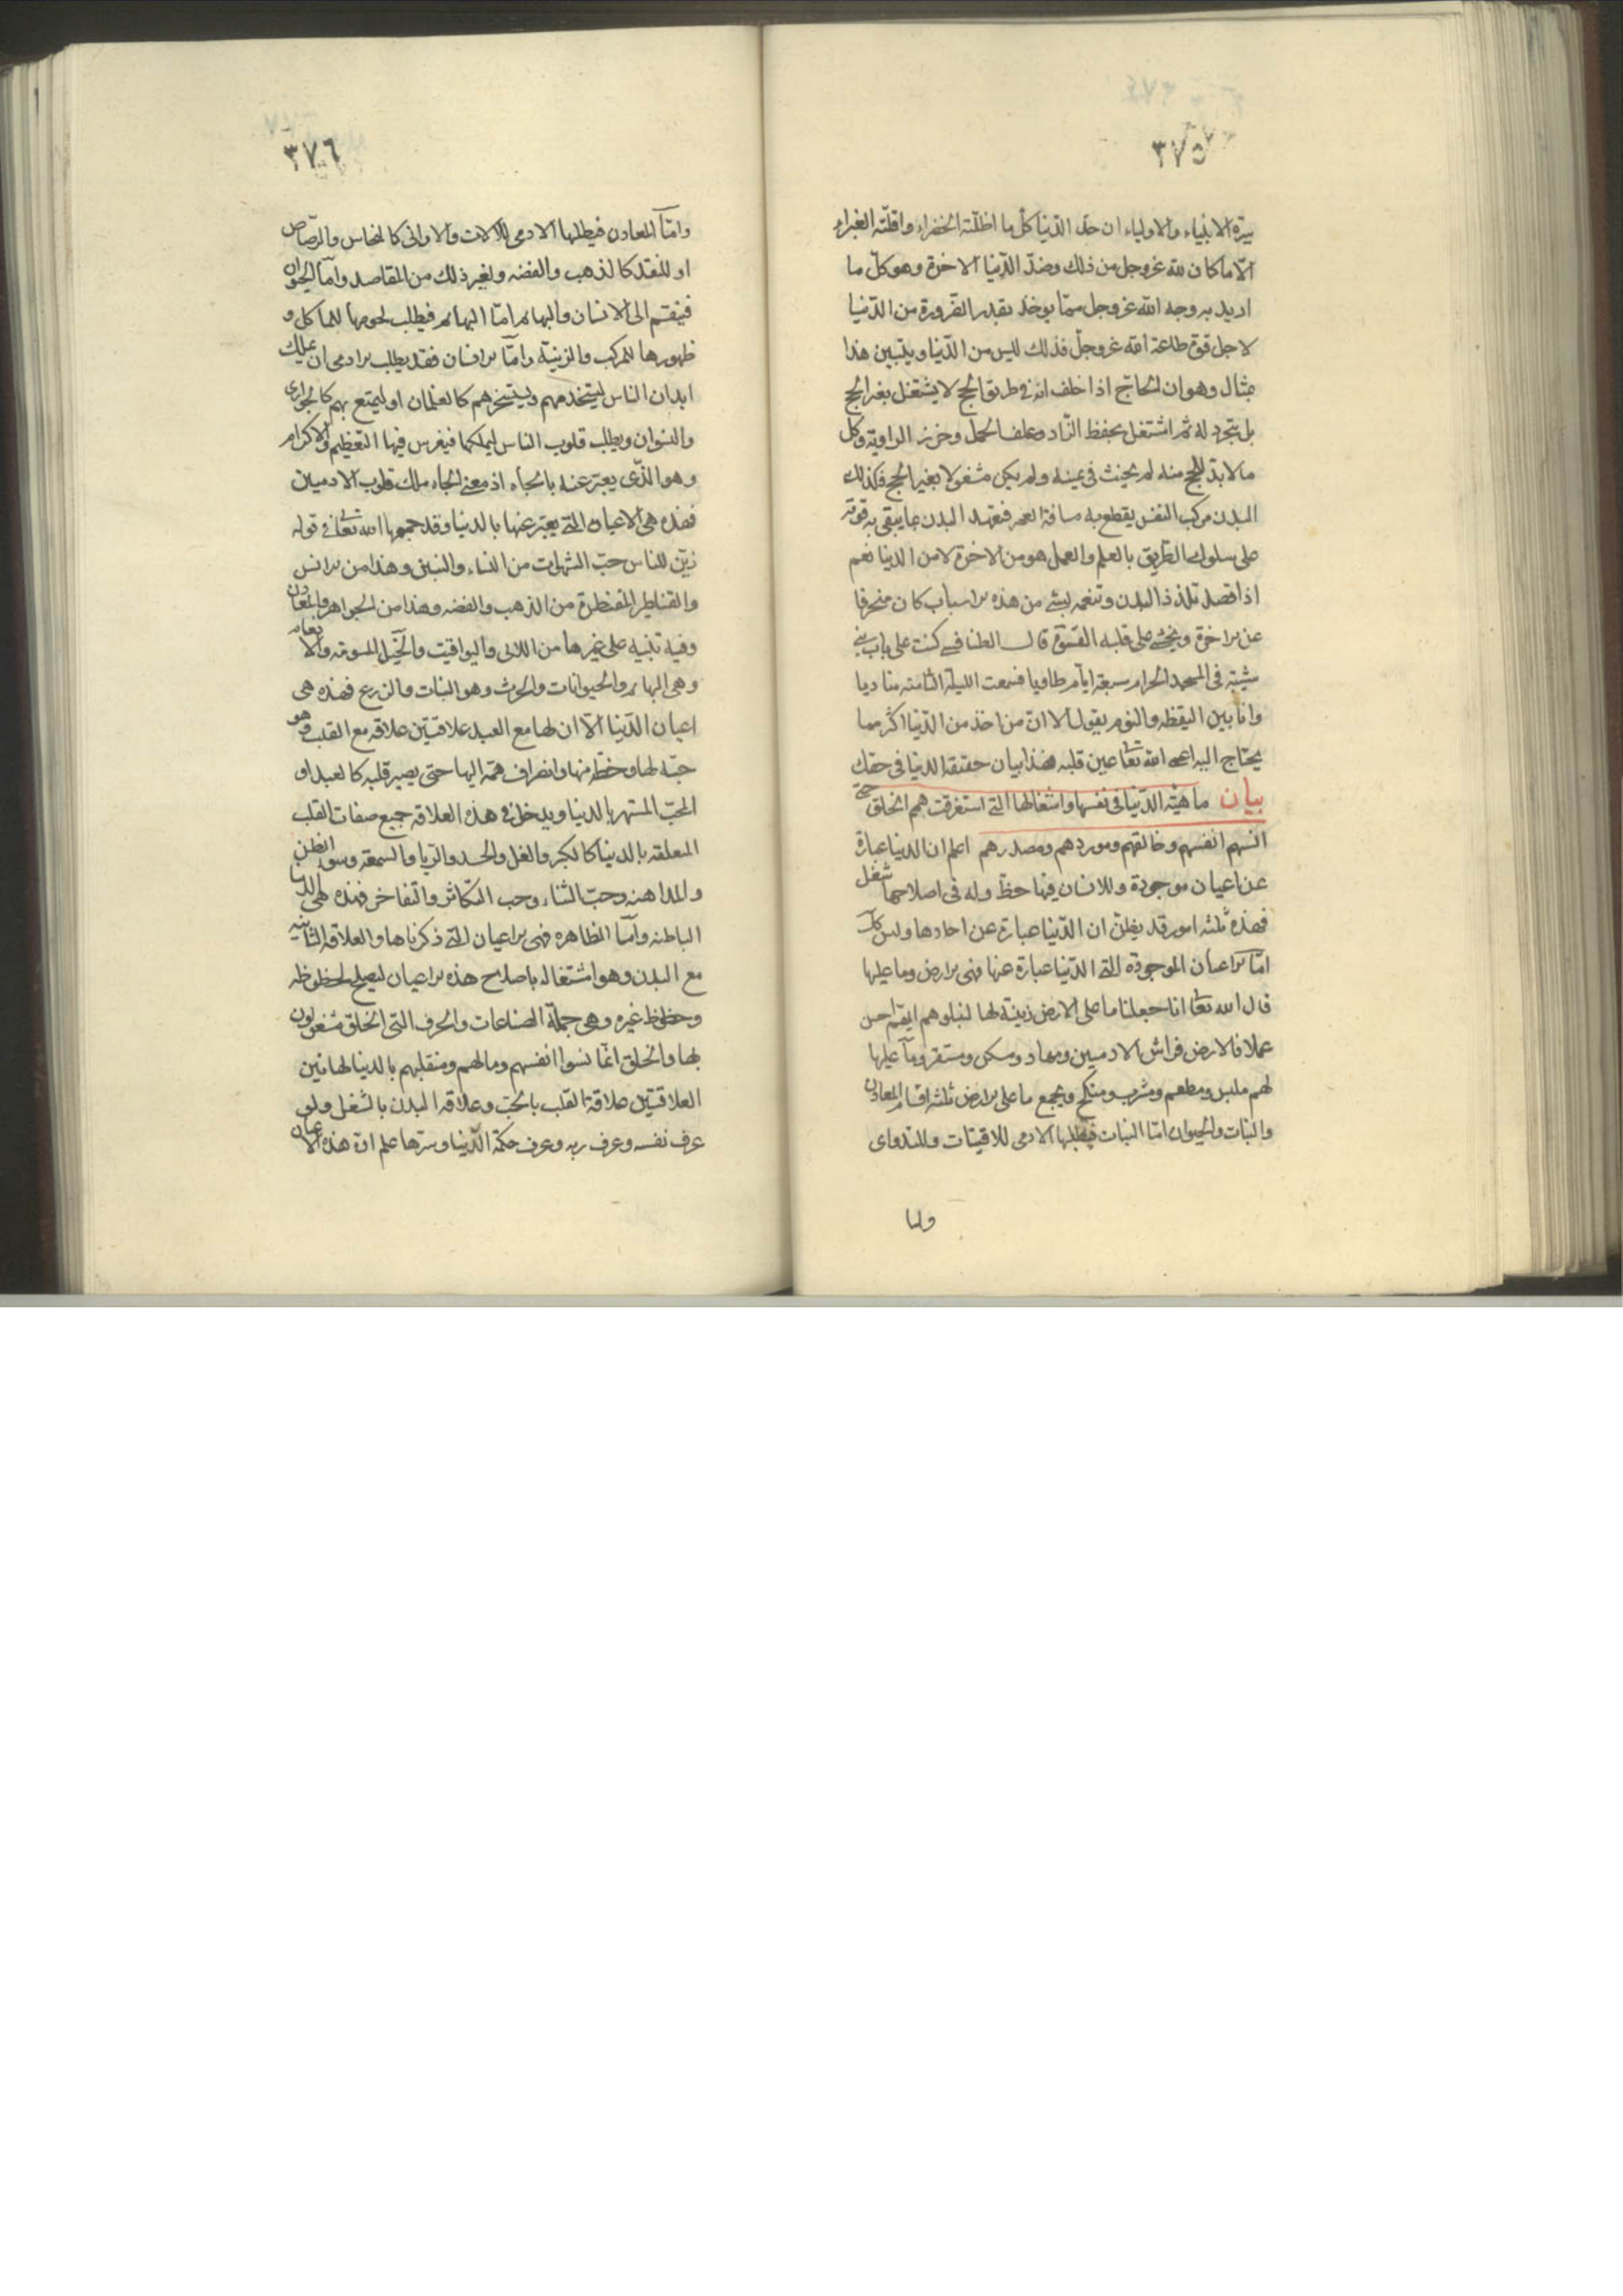 ٣٧٥
سيرة الانبياء والاولياء ان حد الدّنيا كلّ ما اظلّته الخضراء واقلّته الغبراء
الّا ما كان لله عز وجل من ذلك وضدّ الدّنيا الاخرة وهو كلّ ما
اريد به وجه الله عز وجل ممّا يوخذ بقدر الضرورة من الدّنيا
لاجل قوة طاعة الله عز وجلّ فذلك ليس من الدّنيا ويتبين هذا
بمثال وهو ان الحاج اذا حلف انه في طريق الحج لا يشتغل بغير الحج
بل يتجرد له ثم اشتغل بحفظ الزّاد وعلف الجمل وخرز الراوية وكل
ما لا بد للحج منه لم يحنث في يمينه ولم يكن مشغولا بغير الحج فكذلك
البدن مركب النفس يقطع به مسافة العمر فتعهد البدن بما يبقى به قوته
على سلوك الطريق بالعلم والعمل هو من الاخرة لا من الدنيا نعم
اذا قصد تلذذ البدن وتنعمه بشئ من هذه الاسباب كان منحرفا
عن الاخرة ويخشى على قلبه القسوة قال الطنافسي كنت على باب بني
شيبة في المسجد الحرام سبعة ايام طاويا فسمعت الليلة الثامنه مناديا
وانا بين اليقظه والنوم يقول الا انّ من اخذ من الدّنيا اكثر مما
يحتاج اليه اعمى الله تعا عين قلبه فهذا بيان حقيقة الدنيا في حقك
بيان ماهيّة الدّنيا في نفسها واشغالها التي استغرقت همم الخلق حتى
انستهم انفسهم وخالقهم وموردهم ومصدرهم اعلم ان الدنيا عبارة
عن اعيان موجودة وللانسان فيها حظّ وله في اصلاحها شغل
فهذه ثلثه امور قد يظنّ ان الدّنيا عبارة عن احادها وليس كذلك
امّا الاعيان الموجودة التي الدّنيا عبارة عنها فهي الارض وما عليها
قال الله تعا انا جعلنا ما على الارض زينة لها لنبلوهم ايهم احسن
عملا فالارض فراش الادميين ومهاد ومسكن ومستقر وما عليها
لهم ملبس ومطعم ومشرب ومنكح ويجمع ما على الارض ثلثه اقسام المعادن
والنبات والحيوان امّا النبات فيطلبها الادمى للاقتيات وللتداوى
واما
٣٧٦
وامّا المعادن فيطلبها الادمى للالات والاوانى كالنحاس والرّصاص
او للنقد كالذهب والفضه ولغير ذلك من المقاصد وامّا الحيوان
فينقسم الى الانسان والبهائم امّا البهائم فيطلب لحومها للماكل و
ظهورها للمركب والزينة وامّا الانسان فقد يطلب الادمى ان يملك
ابدان الناس ليستخدمهم ويستسخرهم كالغلمان او ليتمتع بهم كالجوارى
والنسوان ويطلب قلوب الناس ليملكها فيغرس فيها التعظيم والاكرام
وهو الذّى يعبّر عنه بالجاه اذ معنى الجاه ملك قلوب الادميين
فهذه هي الاعيان التي يعبّر عنها بالدنيا وقد جمعها الله تعا في قوله
زيّن للناس حبّ الشهوات من النساء والبنين وهذا من الانس
والقناطير المقنطرة من الذهب والفضه وهذا من الجواهر والمعادن
وفيه تنبيه على غيرها من اللالى واليواقيت والخيل المسومة والانعام
وهى البهائم والحيوانات والحرث وهو النبات والزرع فهذه هى
اعيان الدّنيا الّا ان لها مع العبد علاقتين علاقه مع القلب وهو
حبّه لها وحظّه منها وانصراف همّه اليها حتى يصير قلبه كالعبد او
المحبّ المستهتر بالدنيا ويدخل في هذه العلاقه جميع صفات القلب
المتعلقه بالدنيا كالكبر والغل والحسد والريا والسمعة وسوء الظن
والمداهنه وحبّ الثناء وحب التكاثر والتفاخر فهذه هى الدنيا
الباطنه وامّا الظاهره فهى الاعيان التي ذكرناها والعلاقة الثانية
مع البدن وهو اشتغاله باصلاح هذه الاعيان ليصلح لحظوظه
وحظوظ غيره وهى جملة الصناعات والحرف التى الخلق مشغولون
بها والخلق انّما نسوا انفسهم ومالهم ومنقلبهم بالدنيا لهاتين
العلاقتين علاقة القلب بالحبّ وعلاقة البدن بالشغل ولو
عرف نفسه وعرف ربه وعرف حكمة الدّنيا وسرّها علم انّ هذه الاعيان